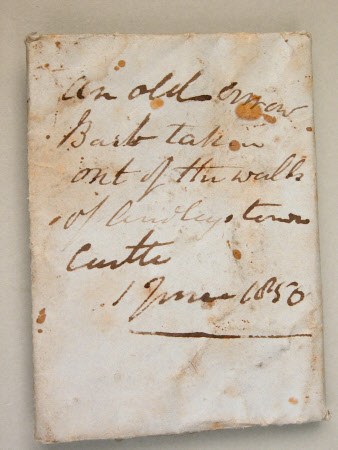 An old arrow
Barb taken
out of the walls
of Audleystown
Castle
1 June 1850